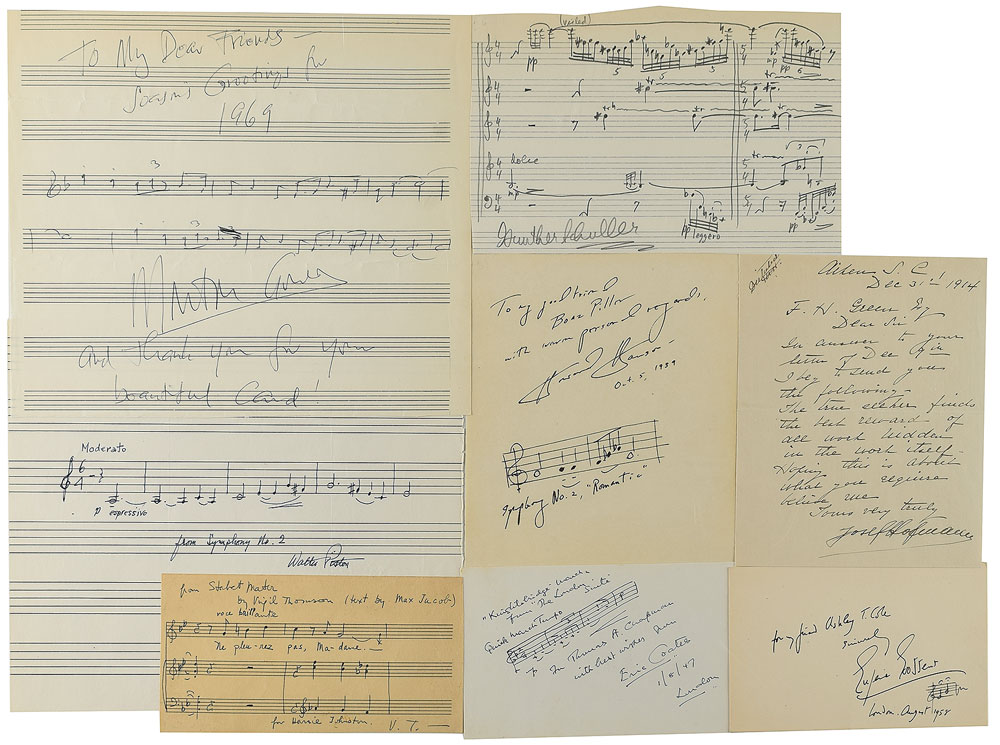 To My Dear Friends
Season's Greetings for
1969
3
3
Morton Gould
and thank you for your
beautiful Card!
(veiled)
pp
5
5
3
mp
pp
6
tr
tr
dolce
mp
tr
3
pp leggero
pp
Gunther Schuller
To my good friend
Boaz Piller
with warm personal regards,
Howard Hanson
Oct. 5, 1939
Symphony No. 2, "Romantic"
Aiken S. C.
Dec 31st 1914
F. H. Green Esq
Dear Sir
In answer to your
letter of Dec
I beg to send you
the following.
The true seeker finds
the best reward of
all work hidden
in the work itself.
Hoping this is about
what you require
believe me
Yours very truly
Josef Hofmann
Moderato
6
4
p espressivo
from Symphony No. 2
Walter Piston
from Stabat Mater
by Virgil Thomson (text by Max Jacob)
voce brillante
Ne pleu-rez pas, Ma-dame.
for Harriet Johnston.
V. T.
"Knightsbridge" March
From "The London Suite"
Quick March Tempo
p
For Thomas A. Chapman
with best wishes from
Eric Coates
1/8/47
London
for my friend Ashley T. Cole
sincerely
Eugene Goossens
London. August 1958